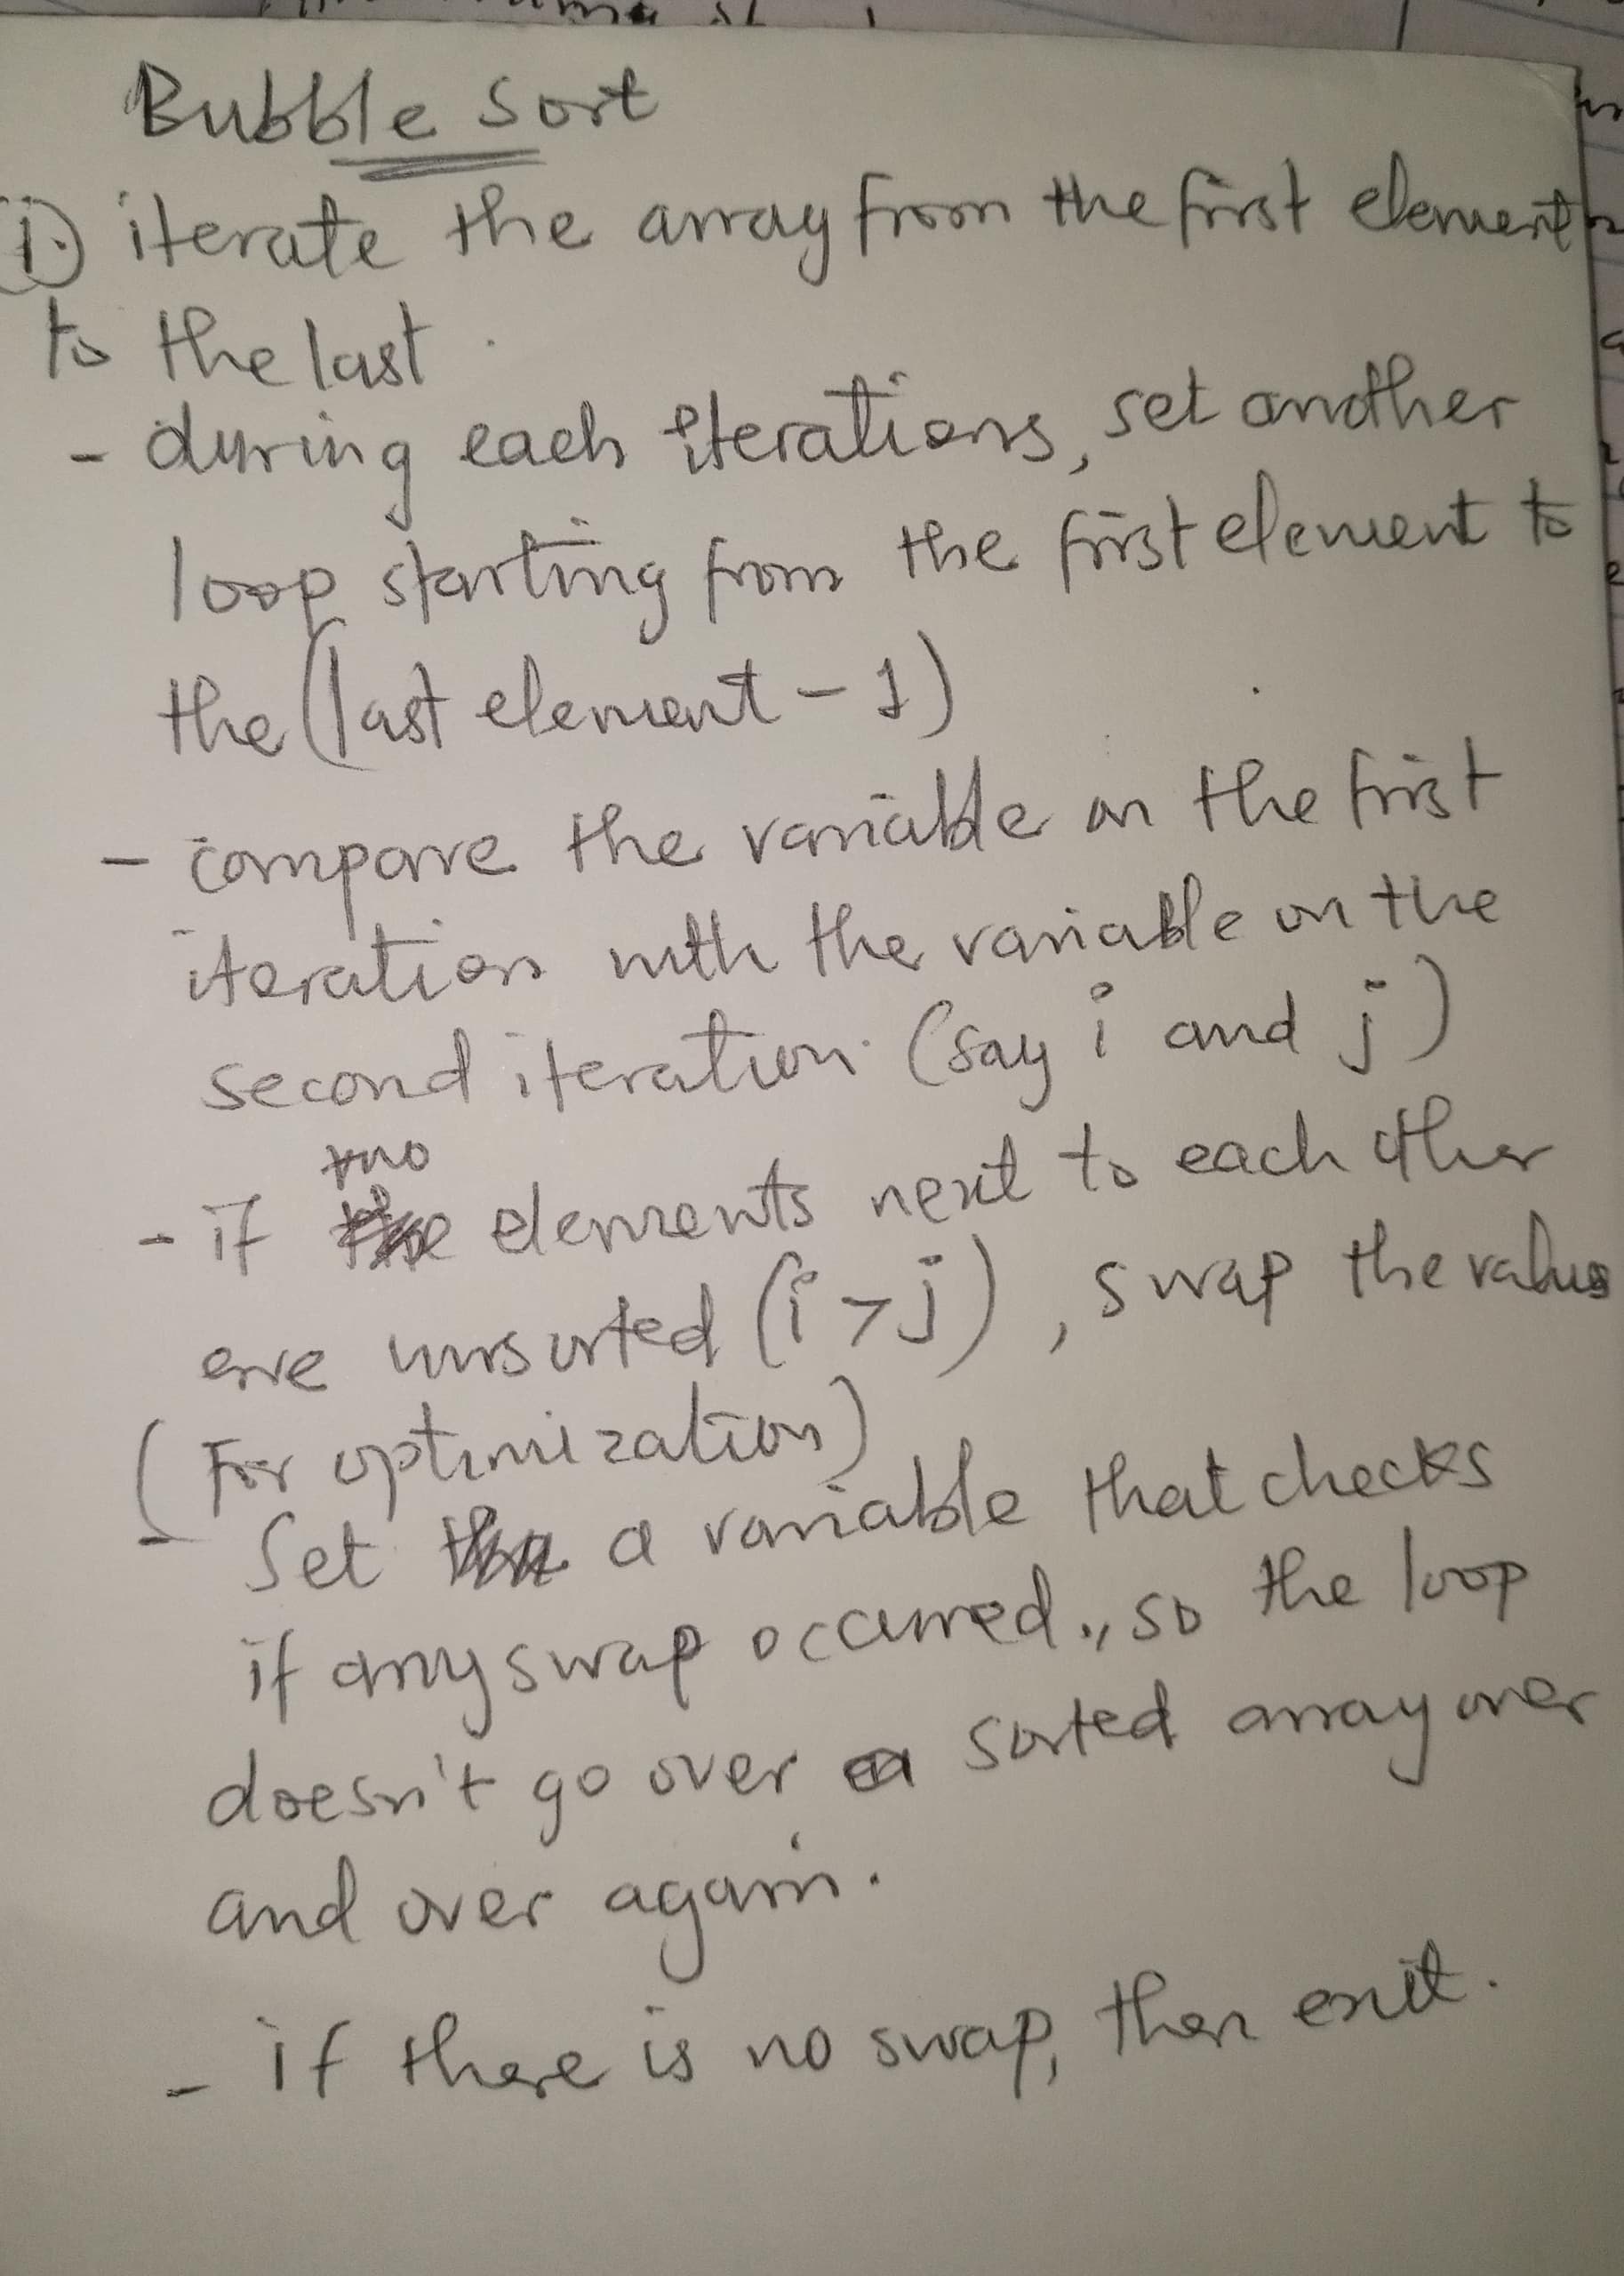 Bubble Sort
1. iterate the array from the first element
to the last.
- during each iterations, set another
loop starting from the first element to
the (last element - 1)
- compare the variable on the first
iteration with the variable on the
second iteration. (say i and j)
two
- if elements next to each other
are unsorted (i > j), swap the values
(For optimization)
- Set a variable that checks
if any swap occurred., so the loop
doesn't go over a sorted array over
and over again.
- if there is no swap, then exit.